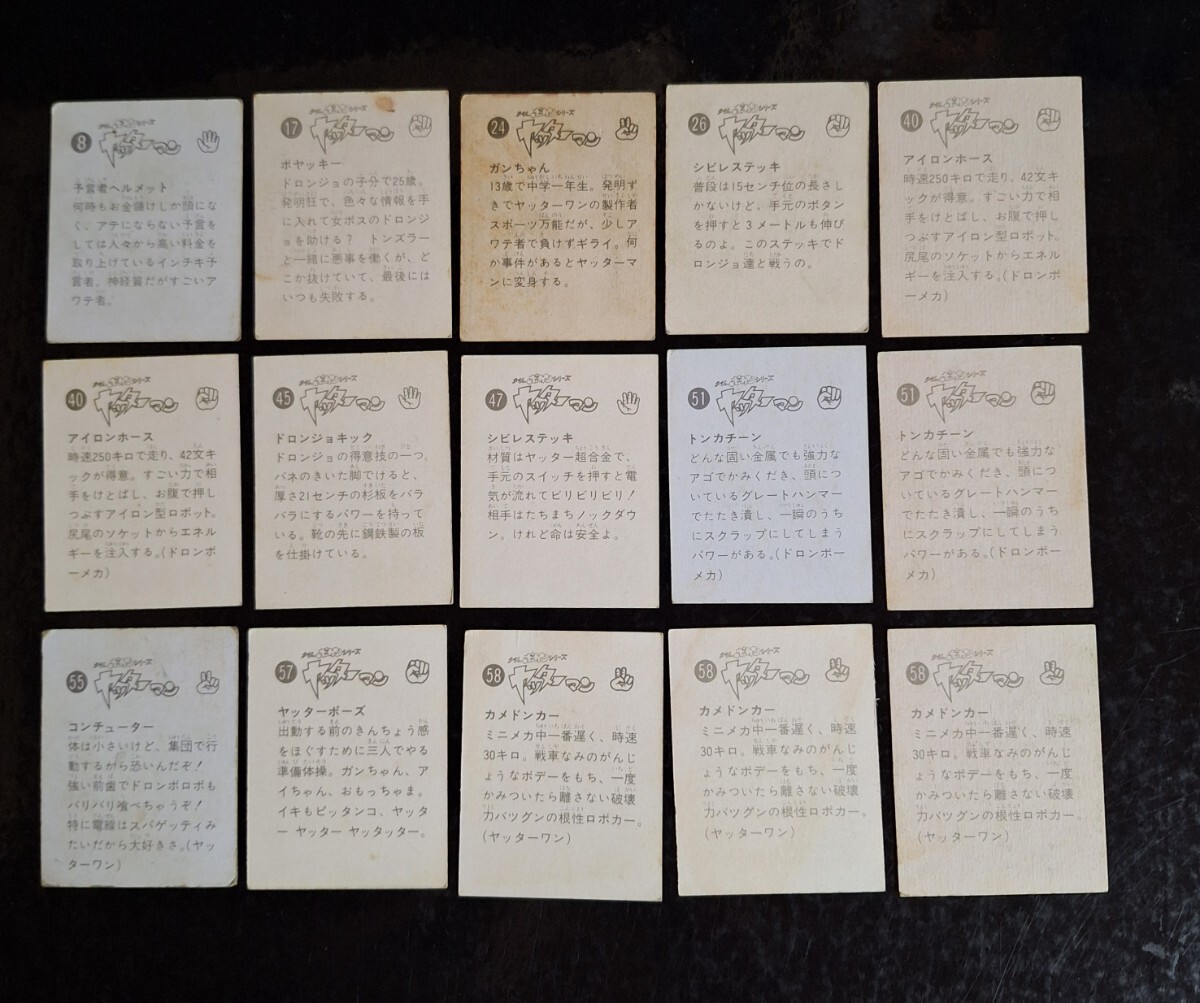 8
タイムボカンシリーズ
ヤッターマン
予言者ヘルメット
何時もお金儲けしか頭にな
く、アテにならない予言を
しては人々から高い料金を
取り上げているインチキ予
言者。神経質だがすごいア
ワテ者。
17
タイムボカンシリーズ
ヤッターマン
ボヤッキー
ドロンジョの子分で25歳。
発明狂で、色々な情報を手
に入れて女ボスのドロンジ
ョを助ける？ トンズラー
と一緒に悪事を働くが、ど
こか抜けていて、最後には
いつも失敗する。
24
タイムボカンシリーズ
ヤッターマン
ガンちゃん
13歳で中学一年生。発明ず
きでヤッターワンの製作者
スポーツ万能だが、少しア
ワテ者で負けずギライ。何
か事件があるとヤッターマ
ンに変身する。
26
タイムボカンシリーズ
ヤッターマン
シビレステッキ
普段は15センチ位の長さし
かないけど、手元のボタン
を押すと3メートルも伸び
るのよ。このステッキでド
ロンジョ達と戦うの。
40
タイムボカンシリーズ
ヤッターマン
アイロンホース
時速250キロで走り、42文キ
ックが得意。すごい力で相
手をけとばし、お腹で押し
つぶすアイロン型ロボット。
尻尾のソケットからエネル
ギーを注入する。(ドロンボ
ーメカ)
40
タイムボカンシリーズ
ヤッターマン
アイロンホース
時速250キロで走り、42文キ
ックが得意。すごい力で相
手をけとばし、お腹で押し
つぶすアイロン型ロボット。
尻尾のソケットからエネル
ギーを注入する。(ドロンボ
ーメカ)
45
タイムボカンシリーズ
ヤッターマン
ドロンジョキック
ドロンジョの得意技の一つ。
バネのきいた脚でけると、
厚さ21センチの杉板をバラ
バラにするパワーを持って
いる。靴の先に鋼鉄製の板
を仕掛けている。
47
タイムボカンシリーズ
ヤッターマン
シビレステッキ
材質はヤッター超合金で、
手元のスイッチを押すと電
気が流れてビリビリビリ！
相手はたちまちノックダウ
ン。けれど命は安全よ。
51
タイムボカンシリーズ
ヤッターマン
トンカチーン
どんな固い金属でも強力な
アゴでかみくだき、頭につ
いているグレートハンマー
でたたき潰し、一瞬のうち
にスクラップにしてしまう
パワーがある。(ドロンボー
メカ)
51
タイムボカンシリーズ
ヤッターマン
トンカチーン
どんな固い金属でも強力な
アゴでかみくだき、頭につ
いているグレートハンマー
でたたき潰し、一瞬のうち
にスクラップにしてしまう
パワーがある。(ドロンボー
メカ)
55
タイムボカンシリーズ
ヤッターマン
コンチューター
体は小さいけど、集団で行
動するから恐いんだぞ！
強い前歯でドロンボロボも
バリバリ喰べちゃうぞ！
特に電線はスパゲッティみ
たいだから大好きさ。(ヤッ
ターワン)
57
タイムボカンシリーズ
ヤッターマン
ヤッターポーズ
出動する前のきんちょう感
をほぐすために三人でやる
準備体操。ガンちゃん、ア
イちゃん、おもっちゃま。
イキもピッタンコ、ヤッタ
ー ヤッター ヤッタッター。
58
タイムボカンシリーズ
ヤッターマン
カメドンカー
ミニメカ中一番遅く、時速
30キロ。戦車なみのがんじ
ょうなボデーをもち、一度
かみついたら離さない破壊
力バツグンの根性ロボカー。
(ヤッターワン)
58
タイムボカンシリーズ
ヤッターマン
カメドンカー
ミニメカ中一番遅く、時速
30キロ。戦車なみのがんじ
ょうなボデーをもち、一度
かみついたら離さない破壊
力バツグンの根性ロボカー。
(ヤッターワン)
58
タイムボカンシリーズ
ヤッターマン
カメドンカー
ミニメカ中一番遅く、時速
30キロ。戦車なみのがんじ
ょうなボデーをもち、一度
かみついたら離さない破壊
力バツグンの根性ロボカー。
(ヤッターワン)